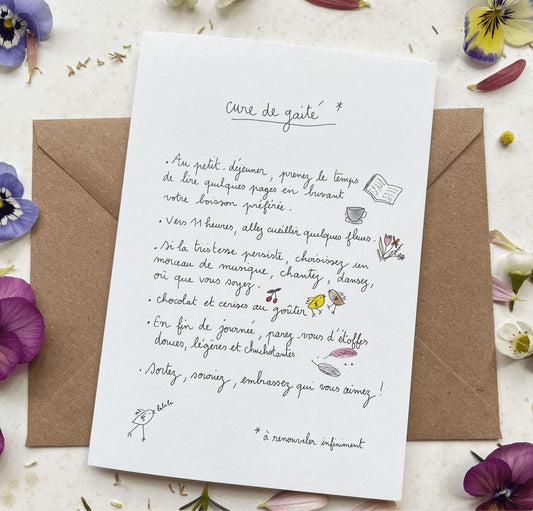 cure de gaité *
. Au petit-déjeuner, prenez le temps
de lire quelques pages en buvant
votre boisson préférée.
. Vers 11 heures, allez cueillir quelques fleurs.
. Si la tristesse persiste, choisissez un
morceau de musique, chantez, dansez,
où que vous soyez.
. chocolat et cerises au goûter
. En fin de journée, parez-vous d'étoffes
douces, légères et chuchotantes
. Sortez, souriez, embrassez qui vous aimez !
lalala
* à renouveler infiniment